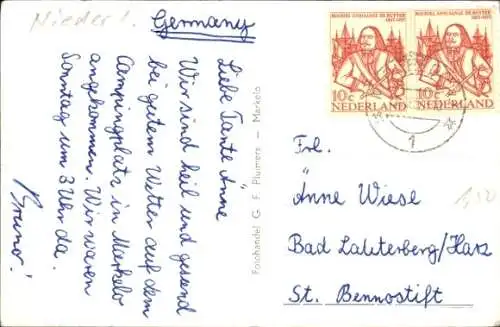 Nieder l.
Germany
Liebe Tante Änne
Wir sind heil und gesund
bei gutem Wetter auf dem
Campingplatz in Markelo
angekommen. Wir waren
Sonntag um 3 Uhr da.
Bruno!
Fotohandel G. F. Pluimers — Markelo
MICHIEL ADRIAANSZ. DE RUYTER
1607-1957
10c
NEDERLAND
MICHIEL ADRIAANSZ. DE RUYTER
1607-1957
10c
NEDERLAND
1
Frl.
Änne Wiese
Bad Lauterberg/Harz
St. Bennostift